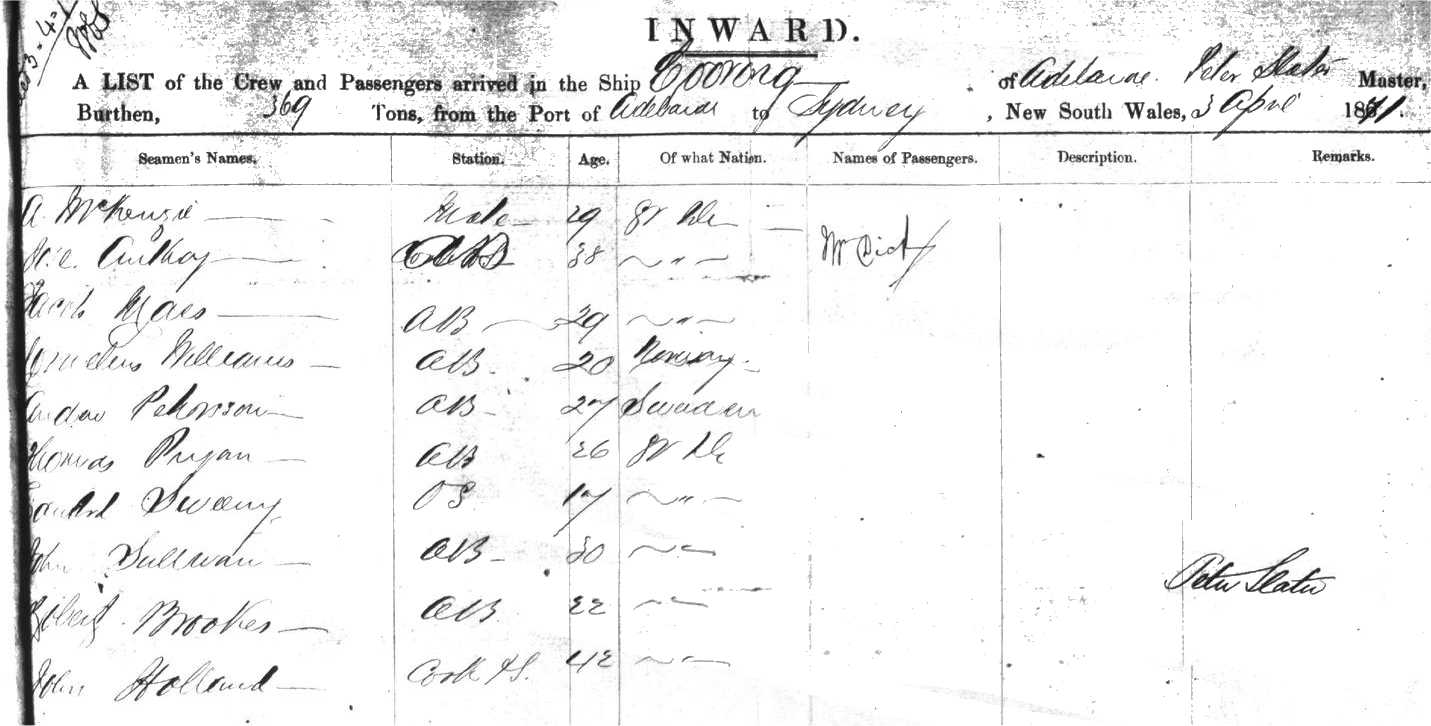 INWARD.
A LIST of the Crew and Passengers arrived in the Ship Coorong of Adelaide Peter Slater Master,
Burthen, 369 Tons, from the Port of Adelaide to Sydney, New South Wales, 3 April 1871.
Seamen's Names. Station. Age. Of what Nation. Names of Passengers. Description. Remarks.
A McKenzie Mate 29 Gt
38 Mr Dick
Jacob AB 29 " 
Cornelius Williams AB 20 Norway
Peterson AB 27 Sweden
Thomas AB 26 Gt
Edward Sweeny OS 17 "
John Sullivan AB 30 "
Peter Slater
Robert Brookes AB 22 "
John Holland Cook & S. 42 "